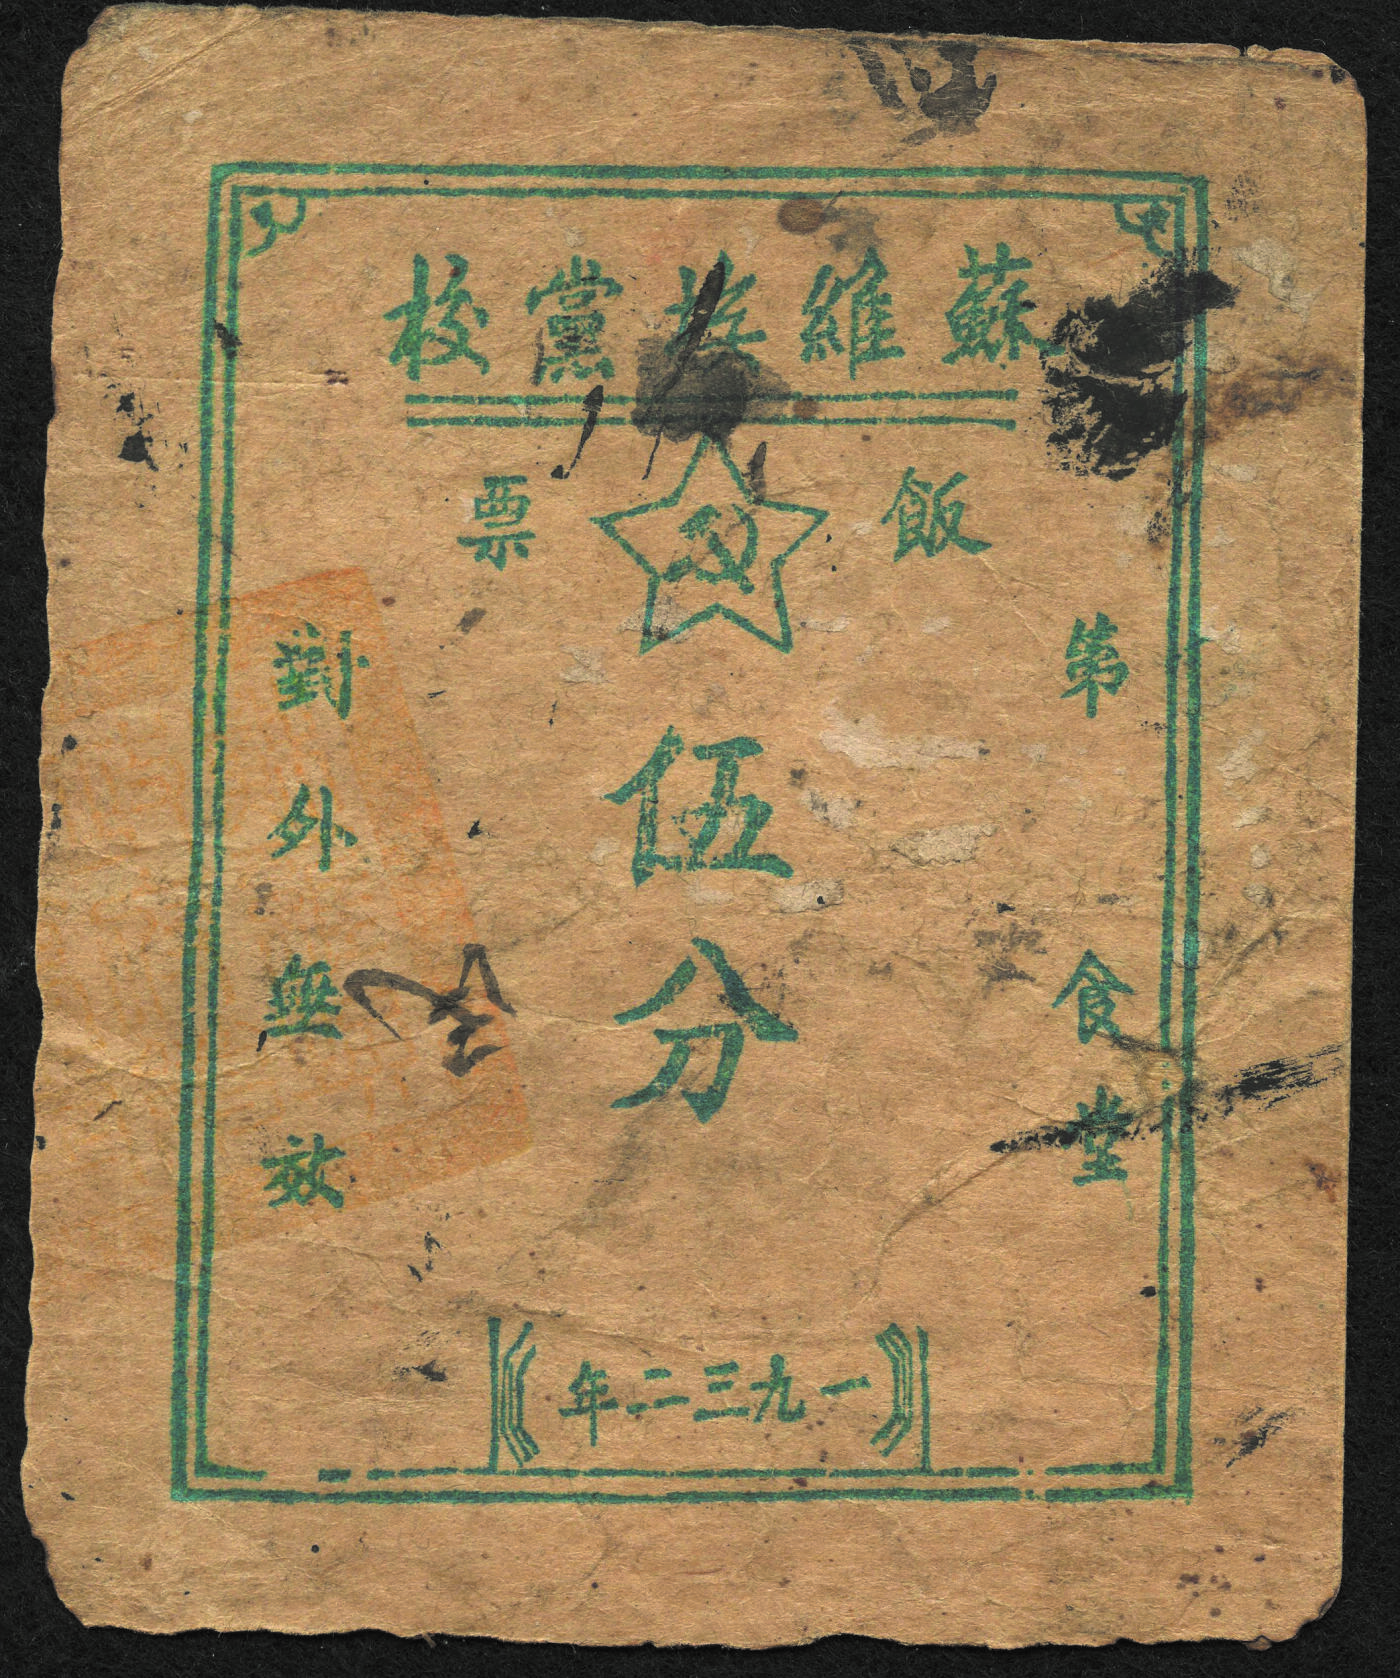 蘇維埃黨校
飯票
第 食堂
伍分
對外無效
一九三二年